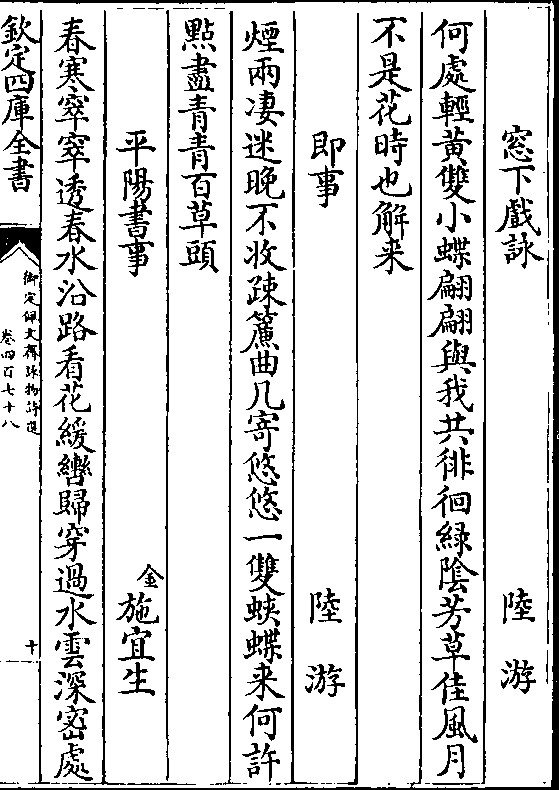 窓下戲詠　陸游
何處輕黃雙小蝶翩翩與我共徘徊綠陰芳草佳風月
不是花時也解来
即事　陸游
煙雨淒迷晚不收疎簾曲几寄悠悠一雙蛺蝶来何許
點盡青青百草頭
平陽書事　金施宜生
春寒窣窣透春水沿路看花緩轡歸穿過水雲深密處
欽定四庫全書
御定佩文齋詠物詩選
卷四百七十八
十